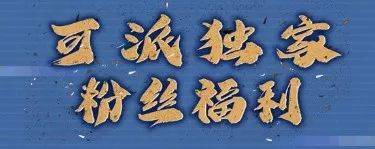 可派独家
粉丝福利